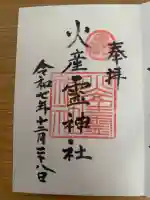 奉拝
火産霊神社
令和七年十二月二十八日